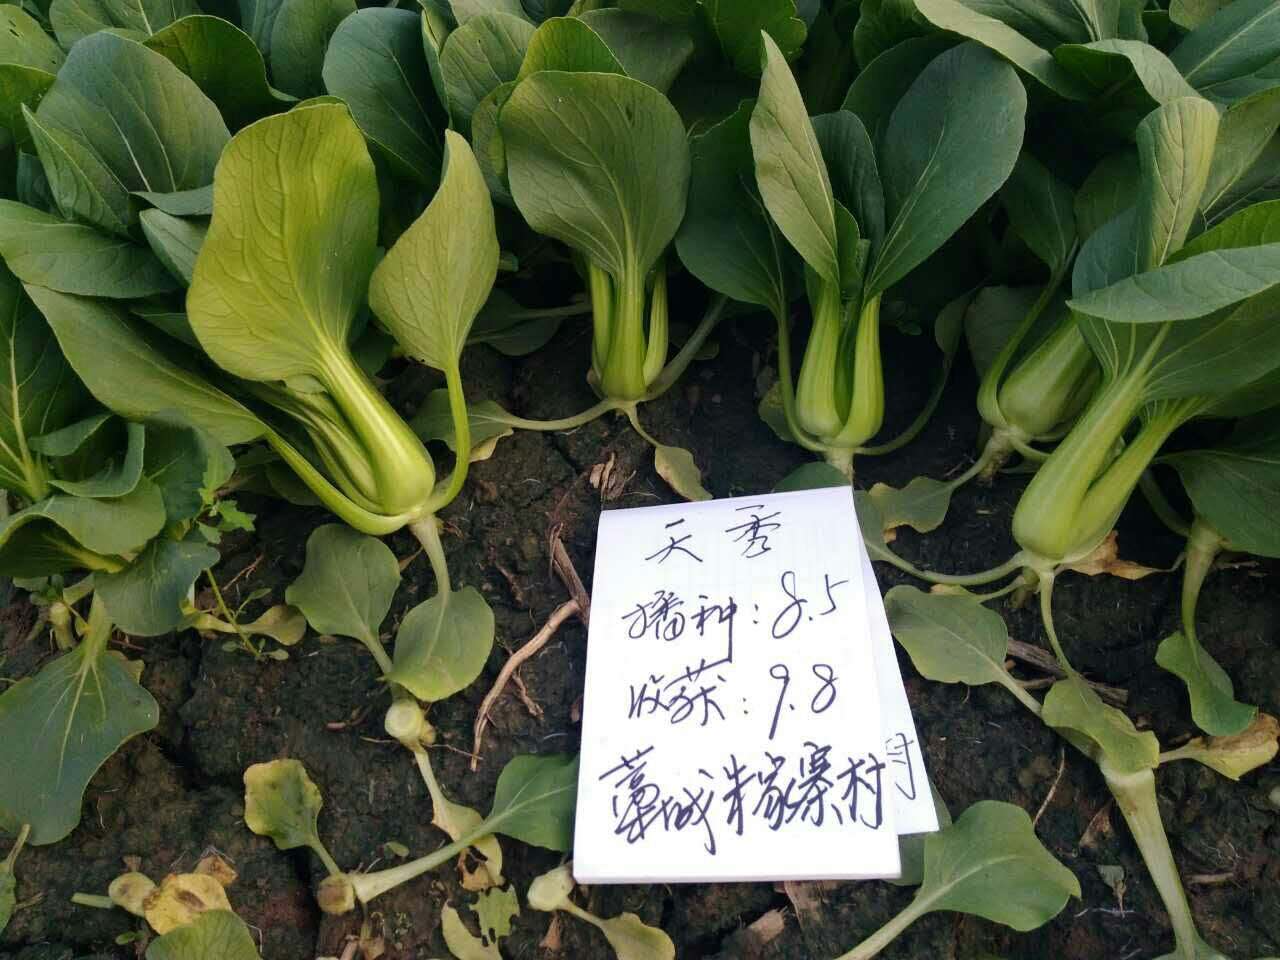 天秀
播种:8.5
收获:9.8
藁城朱家寨村
村